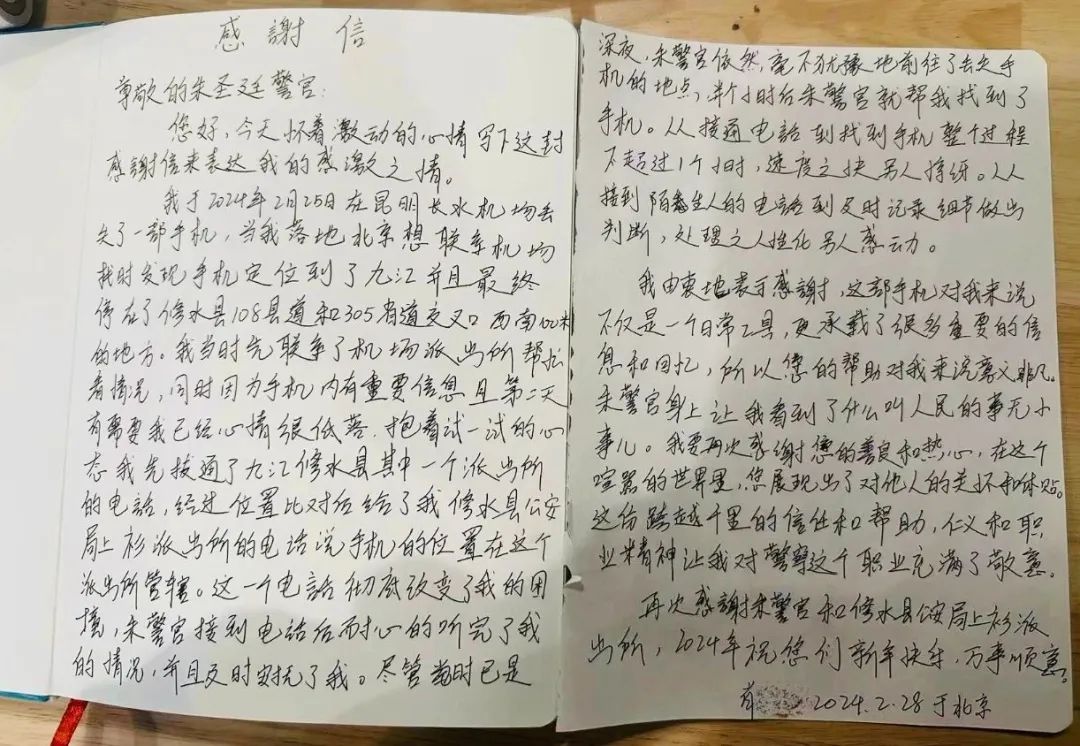 感謝信
尊敬的朱圣廷警官:
您好,今天怀着激动的心情写下这封
感謝信来表达我的感激之情。
我于2024年2月25日在昆明长水机场丢
失了一部手机,当我落地北京想联系机场
找时发现手机定位到了九江并且最终
停在了修水县108县道和305省道交叉口西南100米
的地方。我当时先联系了机场派出所帮忙
看情况,同时因为手机内有重要信息且第二天
有需要我已经心情很低落,抱着试一试的心
态我先拨通了九江修水县其中一个派出所
的电话,经过位置比对后给了我修水县公安
局上衫派出所的电话说手机的位置在这个
派出所管辖。这一个电話彻底改变了我的困
境,朱警官接到电话后耐心的听完了我
的情况,并且及时安抚了我。尽管当时已是
深夜,朱警官依然,毫不犹豫地前往了丢失手
机的地点,半个小时后朱警官就帮我找到了
手机。从接通电話到找到手机整个过程
不超过1个小时,速度之快另人惊讶。从
接到陌生人的电話到及时记录细节做出
判断,处理之人性化另人感动。
我由衷地表示感謝,这部手机对我来说
不仅是一个日常工具,更承载了很多重要的信
息和回忆,所以您的帮助对我来说意义非凡。
朱警官身上让我看到了什么叫人民的事无小
事儿。我要再次感谢您的善良和热心,在这个
喧嚣的世界里,您展现出了对他人的关怀和体贴。
这份跨越千里的信任和帮助,仁义和职
业精神让我对警察这个职业充满了敬意。
再次感謝朱警官和修水县公安局上衫派
出所,2024年祝您们新年快乐,万事顺意。
2024.2.28于北京